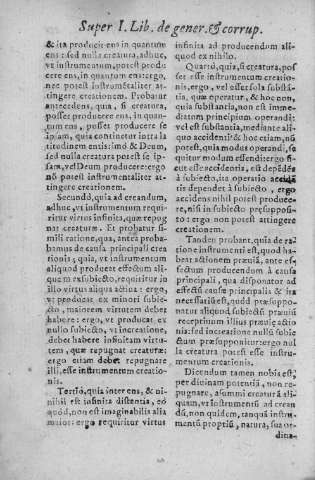 Super I. Lib. de gener. & corrup.
& ita producit ens in quantum
ens: sed nulla creatura, adhuc,
vt instrumentum, potest produ
cere ens, in quantum ens: ergo,
nec potest instrumētaliter at-
tingere creationem. Probatur
antecedens, quia, si creatura,
posset producere ens, in quan-
tum ens, posset producere se
ipsam, quia continetur intra la
titudinem entis: imò & Deum,
sed nulla creatura potest se ip-
sam, vel Deum producere: ergo
nō potest instrumentaliter at-
tingere creationem.
Secundò, quia ad creandum,
adhuc, vt instrumentum requi-
ritur virtus infinita, quæ repug
nat creaturæ. Et probatur si-
mili ratione, qua, anteà proba-
bamus de causa principali crea
tionis, quia, vt instrumentum
aliquod producat effectum ali-
quem ex subiecto, requiritur in
illo virtus aliqua actiua: ergo,
vt producat ex minori subie-
cto, maiorem virtutem debet
habere: ergo, vt producat ex
nullo subiecto, vt increatione,
debet habere infinitam virtu-
tem, quæ repugnat creaturæ:
ergo etiam debet repugnare
illi, esse instrumentum creatio-
nis.
Tertiò, quia inter ens, & ni-
nihil est infinita distentia, eò
quòd, non est imaginabilis alia
maior: ergo requiritur virtus
infinita ad producendum ali-
quod ex nihilo.
Quartò, quia, si creatura, pos
set esse instrumentum creatio-
nis, ergo, vel esset sola substā-
tia, quæ operatur, & hoc non,
quia substantia, non est imme-
diatum principium operandi:
vel est substantia, mediante ali-
quo accidenti: & hoc etiam, nō
potest, quia modus operandi, se
quitur modum essendi: ergo si-
cut esse accidētis, est depēdēs
à subiecto, ita operatio accidē
tis dependet à subiecto, ergo
accidens nihil potest produce-
re, nisi in subiecto præsupposi-
to: ergo non potest attingere
creationem.
Tandem probant, quia de ra-
tione instrumenti est, quod ha-
beat actionem præuiā, ante ef-
fectum producendum à causa
principali, quia disponatur ad
effectū causæ principalis & ita
necessariū est, quòd præsuppo-
natur aliquod subiectū præuiū
receptiuum illius præuię actio
nis: sed increatione nullū subie
ctū præsupponitur: ergo nul
la creatura potest esse instru-
mentum creationis.
Dicendum tamen nobis est,
per diuinam potentiā, non re-
pugnare, assumi creaturā ali-
quam, vt instrumentū ad crean
dū, non quidem, tanquā instru-
mentū propriū, natura, sua or-
dina-